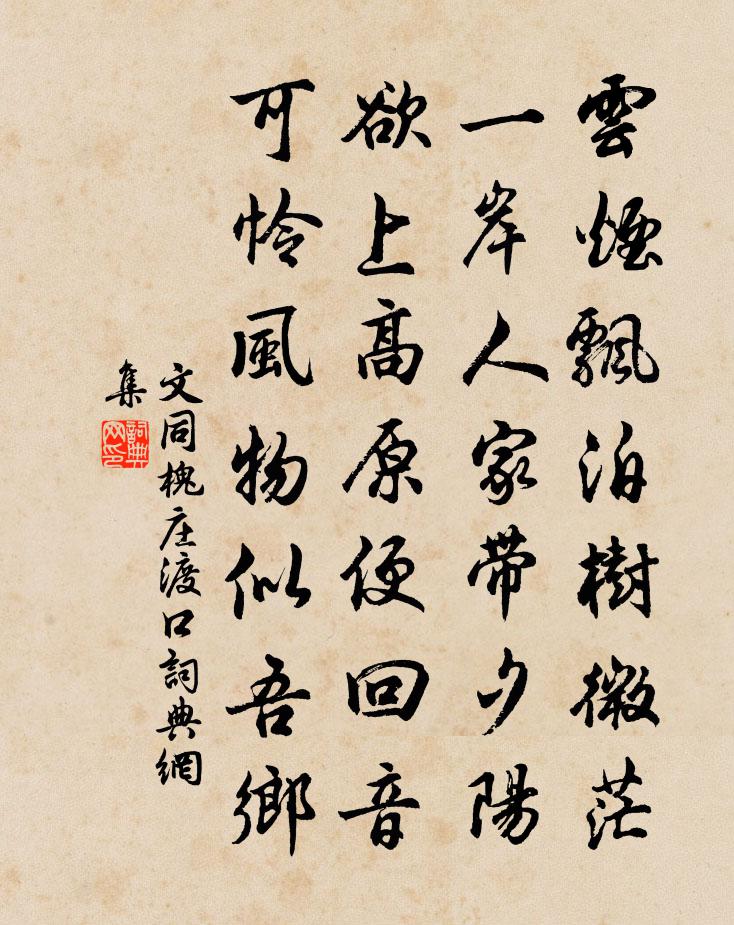 雲煙飄泊樹微茫
一岸人家帶夕陽
欲上高原便回音
可怜風物似吾鄉
文同槐庄渡口詞典網
集
詞典
网印